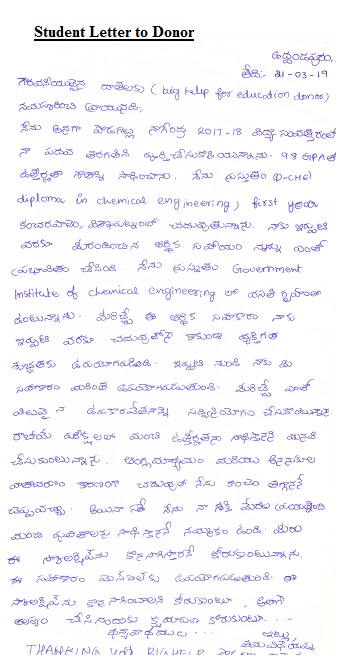 Student Letter to Donor
తేది:- 21-03-19
గౌరవనీయులైన దాతలకు (big help for education donor)
నమస్కరించి వ్రాయునది,
నేను అనగా నాగేంద్ర 2017-18 విద్యా సంవత్సరంలో
నా పదవ తరగతిని పూర్తిచేసుకొనియున్నాను. 9.8 GPAతో
ఉత్తీర్ణతా శాతాన్ని సాధించాను. నేను ప్రస్తుతం (D-CHE)
diploma in chemical engineering) first year
కంచరపాలెం, విశాఖపట్నంలో చదువుతున్నాను. నాకు ఇప్పటి
వరకూ మీరందించిన ఆర్థిక సహాయం నన్ను ఎంతో
ప్రభావితం చేసింది. నేను ప్రస్తుతం Government
Institute of chemical engineering లో వసతి గృహంలో
ఉంటున్నాను. మీరిచ్చే ఈ ఆర్థిక సహకారం నాకు
ఇప్పటి వరకూ చదువుకోనే కాకుండా వ్యక్తిగత
శుభ్రతకు ఉపయోగపడింది. ఇప్పటి నుండి నాకు మీ
సహకారం మరింత ఉపయోగపడుతుంది. మీరిచ్చే ఎంతో
విలువైన ఉపకారవేతనాన్ని సద్వినియోగం చేసుకుంటున్నాను.
రాబోయే పరీక్షలలో మంచి ఉత్తీర్ణతను సాధిస్తానని మనవి
చేసుకుంటున్నాను. ఆంగ్లమాధ్యమం మరియు
వాతావరణం కారణంగా చదువులో నేను కొంచెం తగ్గానని
చెప్పవచ్చు. అయినా సరే నేను నా శక్తి మేరకు ప్రయత్నించి
మంచి ఫలితాలను సాధిస్తానని నమ్మకం ఉంది. మీరు
ఈ స్కాలర్షిప్‌ను కొనసాగిస్తారని కోరుకుంటున్నాను.
ఈ సహకారం ఉపయోగపడుతుంది. ఈ
స్కాలర్షిప్‌ను కొనసాగించాలని కోరుకుంటూ, అలాగే
ఆలస్యం చేసినందుకు క్షమాపణ కోరుకుంటూ...
ధన్యవాదములు... ఇట్లు,
THANKING YOU BIGHELP తమ విధేయుడు